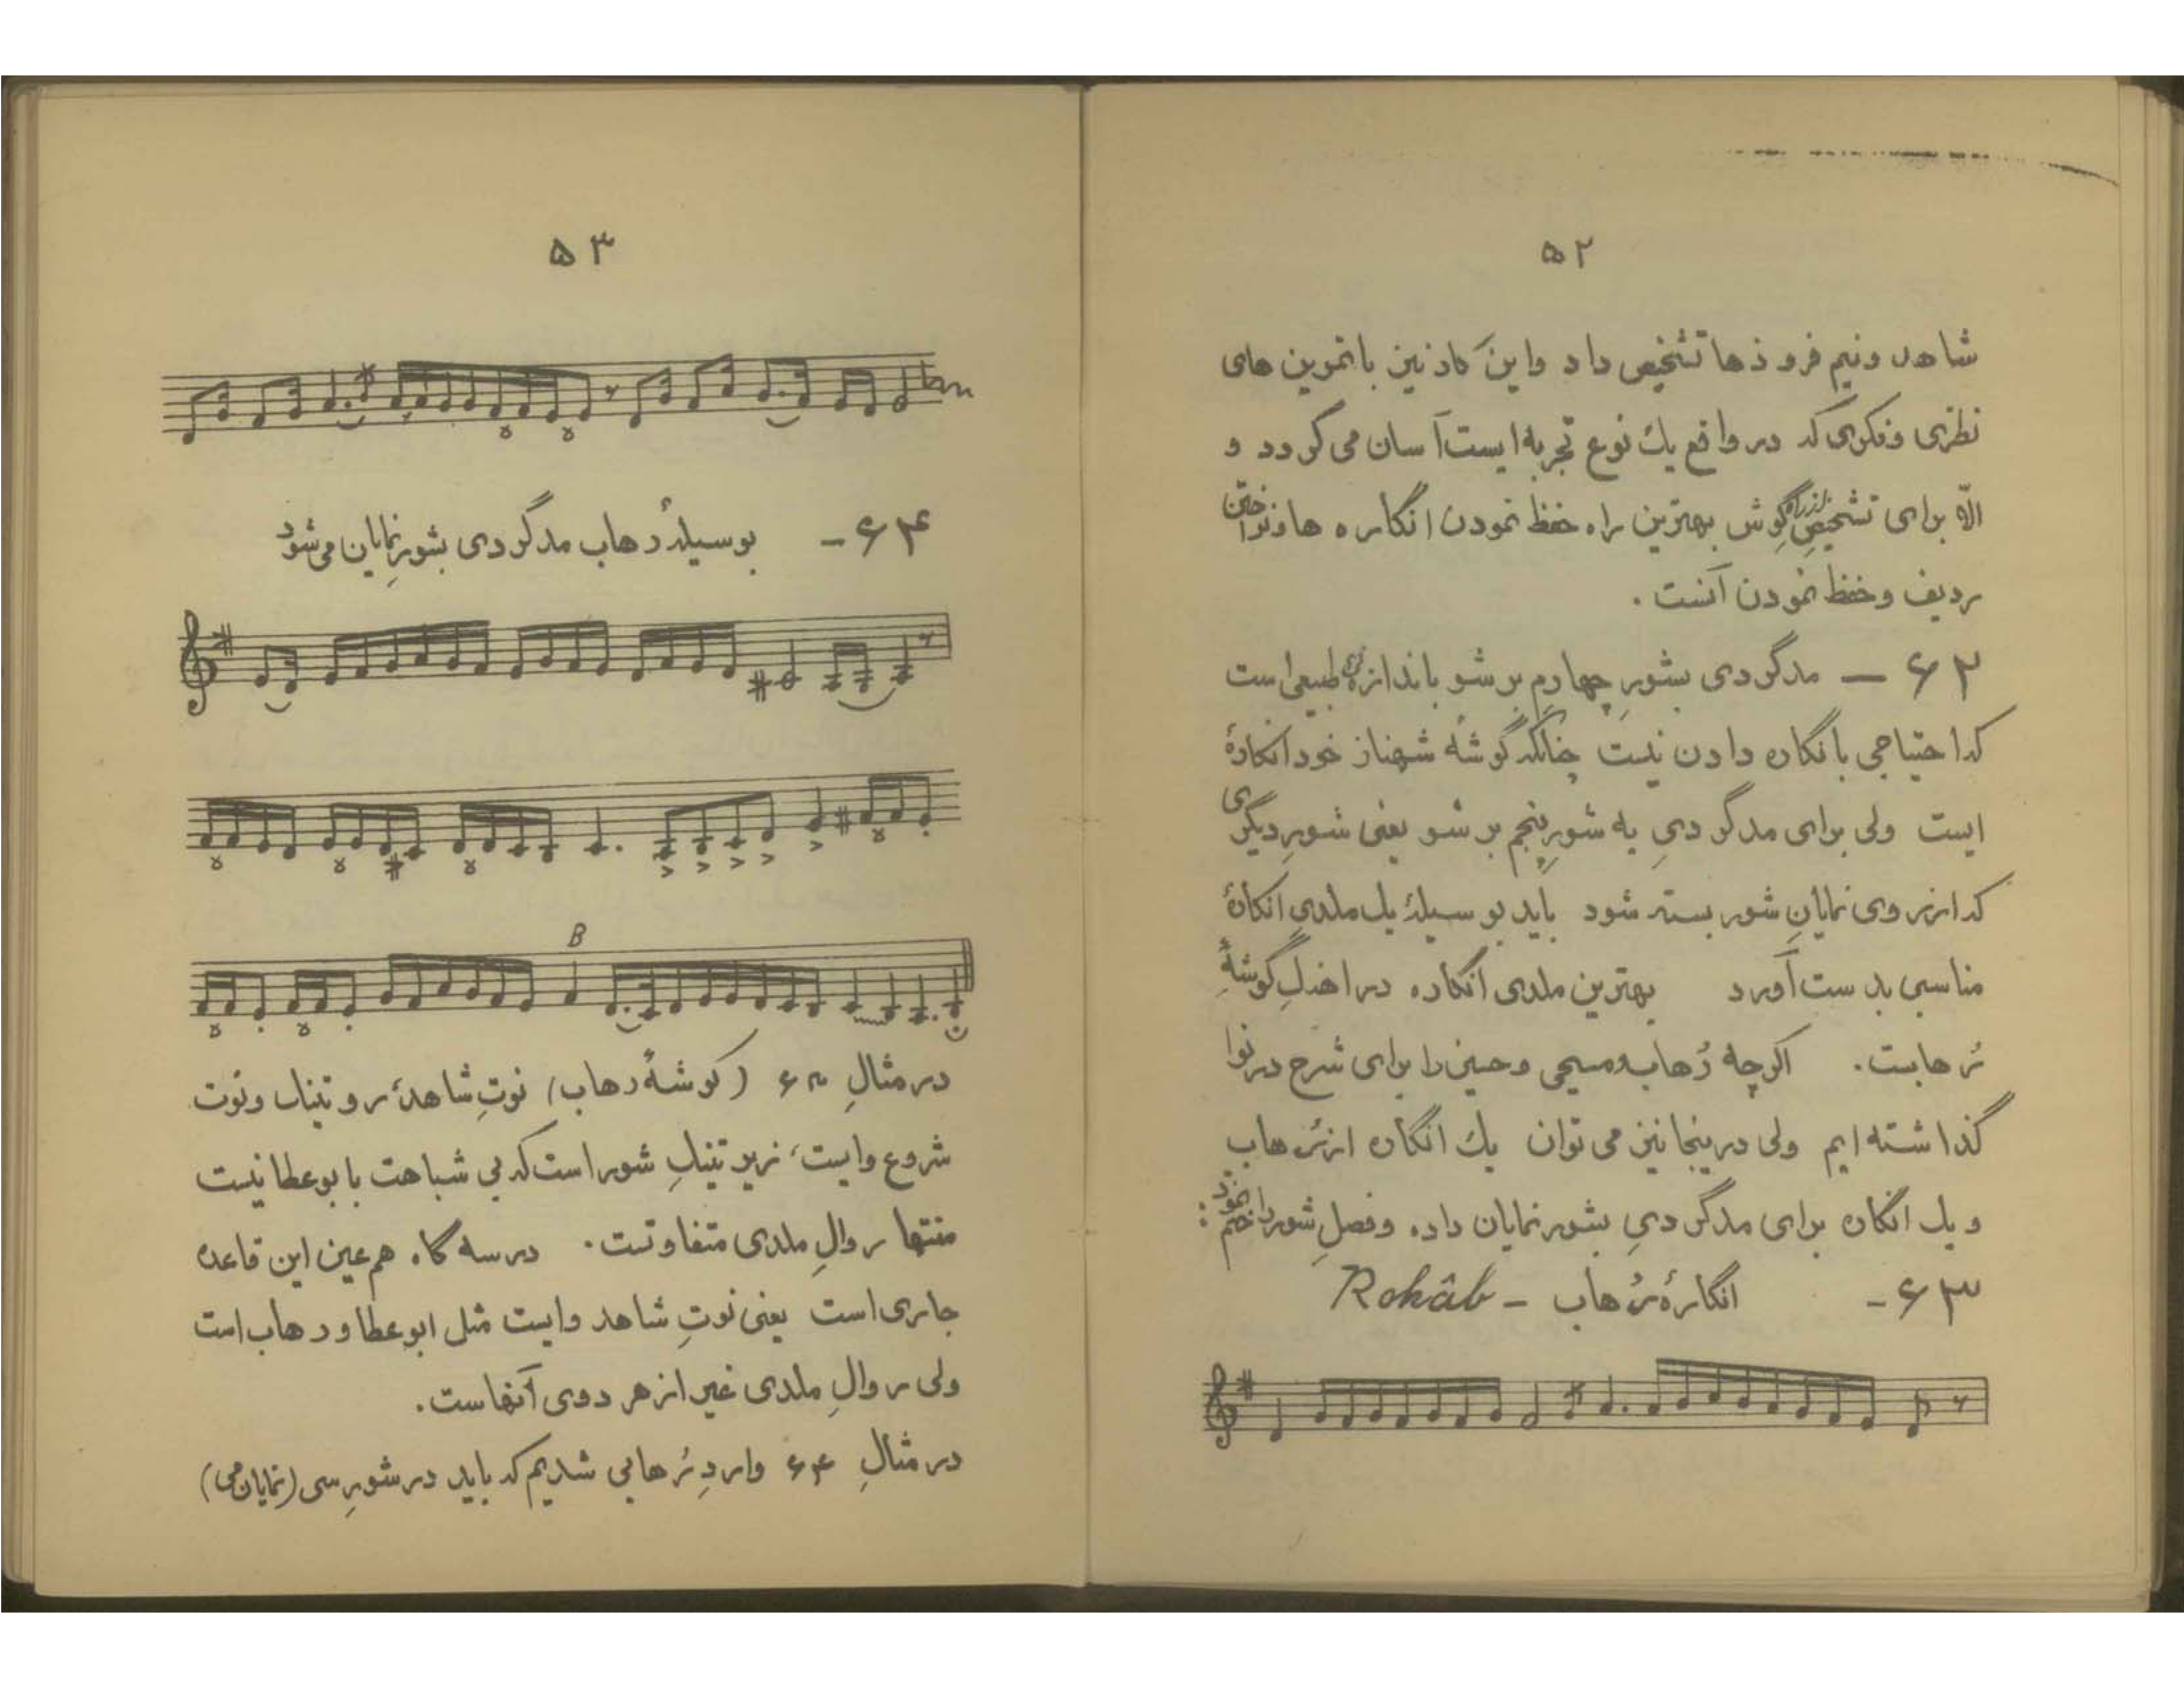 ۵۲
شاهد و نیم فرود ها تشخیص داد و این کار نیز با تمرین های
نظری و فکری که در واقع یک نوع تجربه ایست آسان می گردد و
الّا برای تشخیصِ از راه گوش بهترین راه حفظ نمودن انگاره ها و نواختن
ردیف و حفظ نمودن آنست .
۶۲ — مدگردی بشورِ چهارمِ بر شو باندازه‌ای طبیعی است
که احتیاجی بانگاره دادن نیست چنانکه گوشهٔ شهناز خود انگارهٔ
ایست ولی برای مدگردیِ به شورِ پنجم بر شو یعنی شورِ دیگری
که از روی نمایانِ شور بسته شود باید بوسیلهٔ یک ملدیِ انگارهٔ
مناسبی بدست آورد بهترین ملدی انگاره در داخلِ گوشهٔ
رُهابست . اگرچه رُهاب و مسیحی و حسینی را برای شرح در نوا
گذاشته ایم ولی درینجا نیز می توان یک انگاره از رُهاب
و یک انگاره برای مدگردیِ بشور نمایان داده و فصلِ شور را ختم نمود :
۶۳ - انگارهٔ رُهاب - Rohâb
۵۳
۶۴ - بوسیلهٔ رهاب مدگردی بشورِ نمایان می شود
B
در مثالِ ۶۳ (گوشهٔ رهاب) نوتِ شاهد، رو تنیک و نوت
شروع و ایست، زیر تنیکِ شور است که بی شباهت با بوعطا نیست
منتها روالِ ملدی متفاوتست . در سه گاه هم عین این قاعده
جاری است یعنی نوتِ شاهد و ایست مثل ابوعطا و رهاب است
ولی روالِ ملدی غیر از هر دوی آنهاست .
در مثالِ ۶۴ واردِ رُهابی شدیم که باید در شورِ سی (نمایان می)